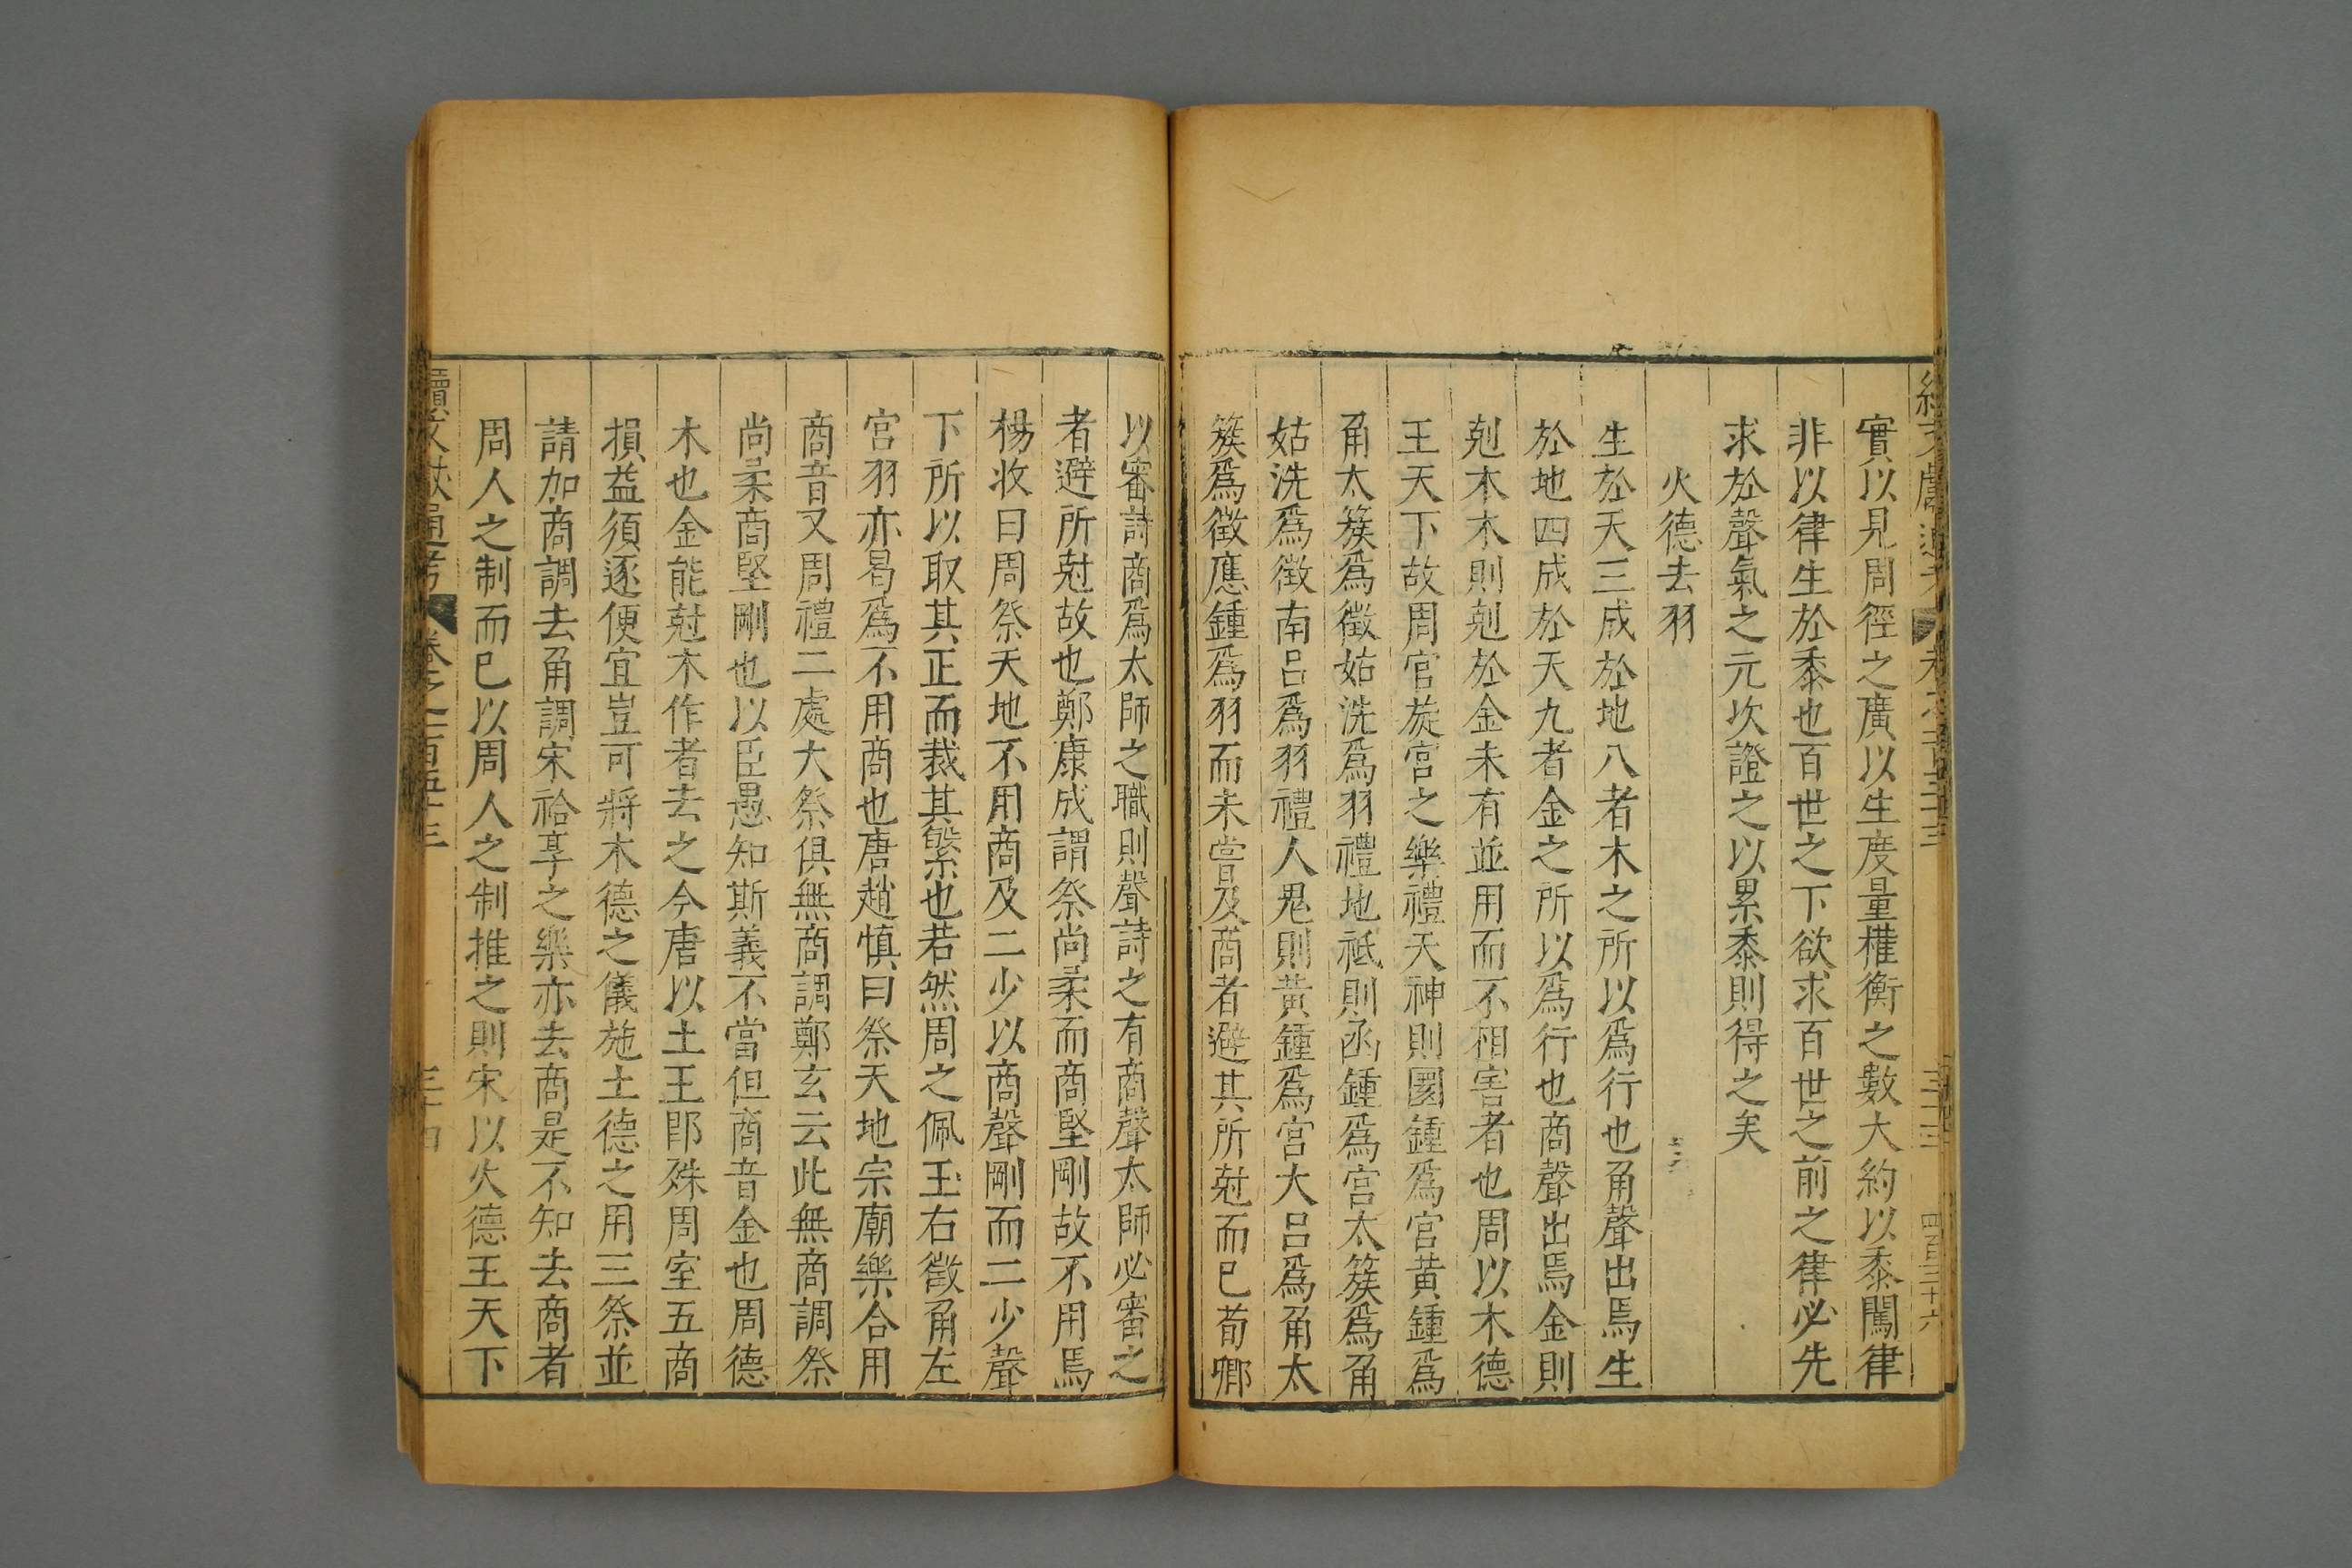 實以見周徑之廣以生度量權衡之數大約以黍闖律
非以律生於黍也百世之下欲求百世之前之律必先
求於聲氣之元次證之以累黍則得之矣
火德去羽
生於天三成於地八者木之所以爲行也角聲出焉生
於地四成於天九者金之所以爲行也商聲出焉金則
剋木木則剋於金未有並用而不相害者也周以木德
王天下故周官旋宮之樂禮天神則圜鍾爲宮黃鍾爲
角太簇爲徵姑洗爲羽禮地祗則函鍾爲宮太簇爲角
姑洗爲徵南呂爲羽禮人鬼則黃鍾爲宮大呂爲角太
簇爲徵應鍾爲羽而未嘗及商者避其所尅而已荀卿
以審詩商爲太師之職則聲詩之有商聲太師必審之
者避所尅故也鄭康成謂祭尚柔而商堅剛故不用焉
楊收曰周祭天地不用商及二少以商聲剛而二少聲
下所以取其正而裁其繁也若然周之佩玉右徵角左
宮羽亦曷爲不用商也唐趙慎曰祭天地宗廟樂合用
商音又周禮二處大祭俱無商調鄭玄云此無商調祭
尚柔商堅剛也以臣愚知斯義不當但商音金也周德
木也金能尅木作者去之今唐以土王即殊周室五商
損益須逐便宜豈可將木德之儀施土德之用三祭並
請加商調去角調宋祫享之樂亦去商是不知去商者
周人之制而已以周人之制推之則宋以火德王天下
續文獻通考 卷之一百五十三